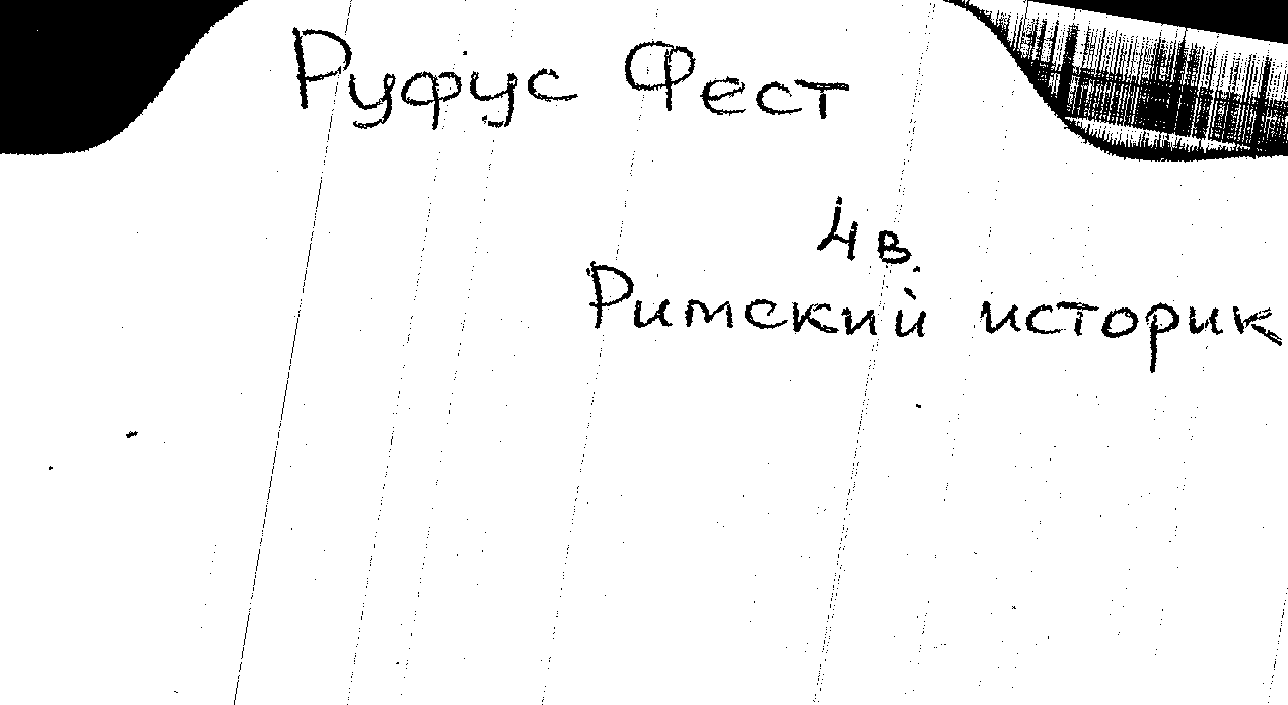 Руфус Фест
4 в.
Римский историк